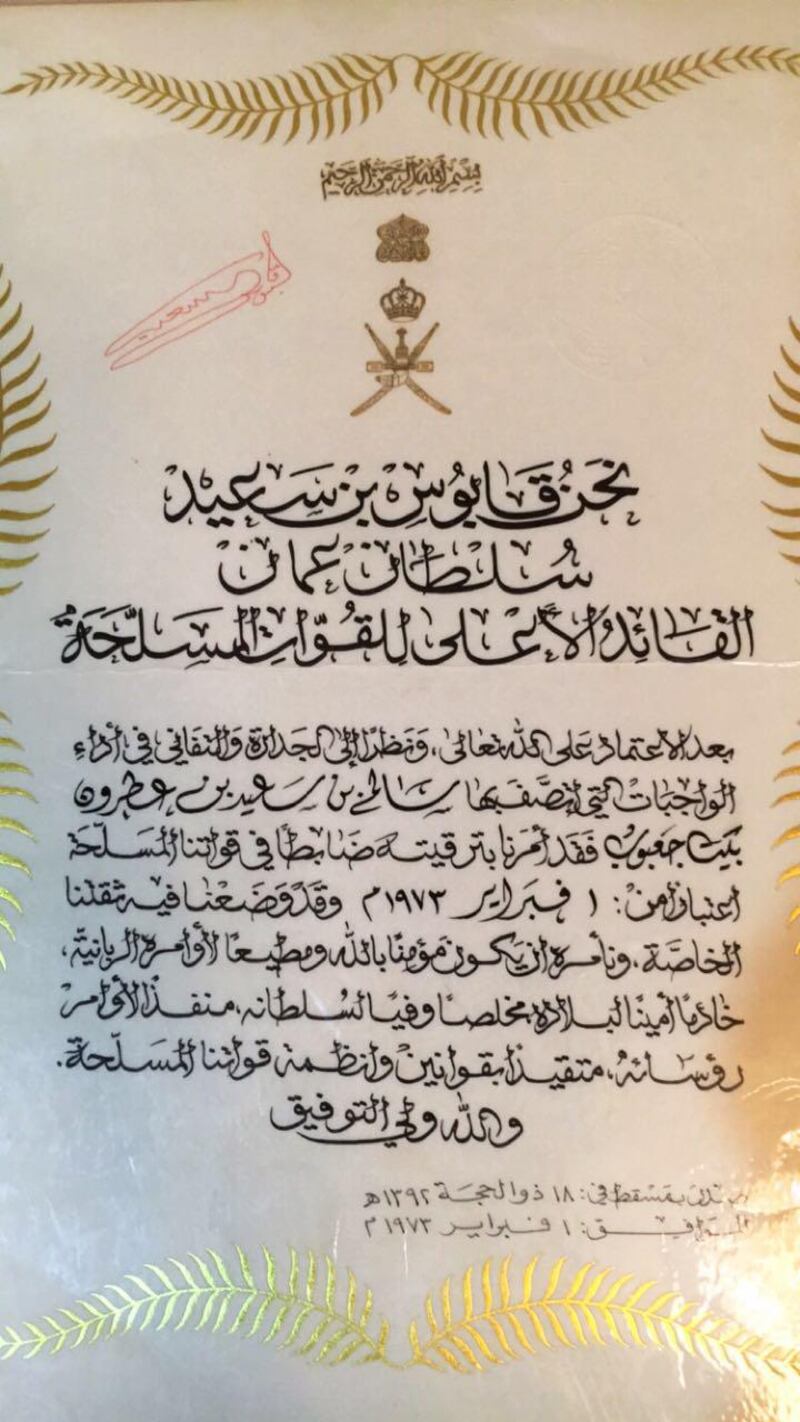 بسم الله الرحمن الرحيم
قابوس بن سعيد
نحن قابوس بن سعيد
سلطان عمان
القائد الأعلى للقوات المسلحة
بعد الاعتماد على الله تعالى، ونظرًا إلى الجدارة والتفاني في أداء
الواجبات التي اتصف بها سالم بن سعيد بن عطرون
بيت جعبوب فقد أمرنا بترقيته ضابطًا في قواتنا المسلحة
اعتبارًا من: ١ فبراير ١٩٧٣م وقد وضعنا فيه ثقتنا
الخاصة، ونأمره ان يكون مؤمنًا بالله ومطيعًا لأوامره الربانية،
خادمًا أمينًا لبلاده، مخلصًا وفيًا لسلطانه، منفذًا لأوامر
رؤسائه، متقيدًا بقوانين وانظمة قواتنا المسلحة.
والله ولي التوفيق
بمسقط في: ١٨ ذو الحجة ١٣٩٢هـ
الموافق: ١ فبراير ١٩٧٣م